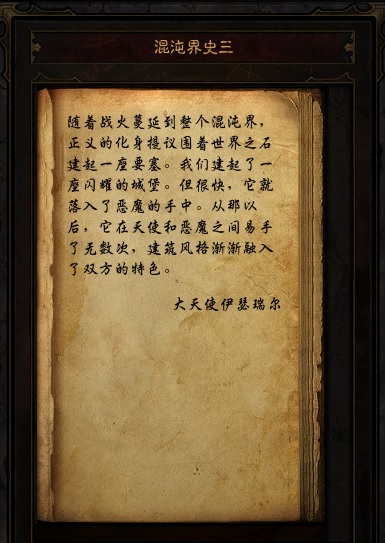 混沌界史三
随着战火蔓延到整个混沌界，
正义的化身提议围着世界之石
建起一座要塞。我们建起了一
座闪耀的城堡。但很快，它就
落入了恶魔的手中。从那以
后，它在天使和恶魔之间易手
了无数次，建筑风格渐渐融入
了双方的特色。
大天使伊瑟瑞尔